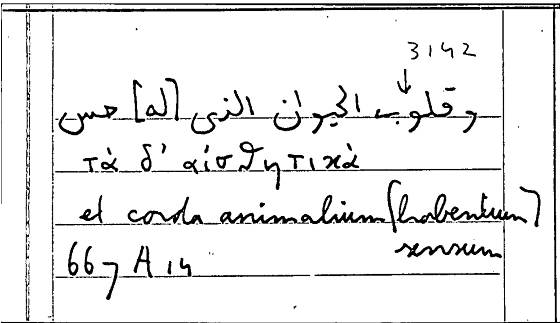 3142
↓
وقلوب الحيوان الذى [له] حس
τὰ δ' αἰσθητικὰ
et corda animalium [habentium]
sensum
667 A 14